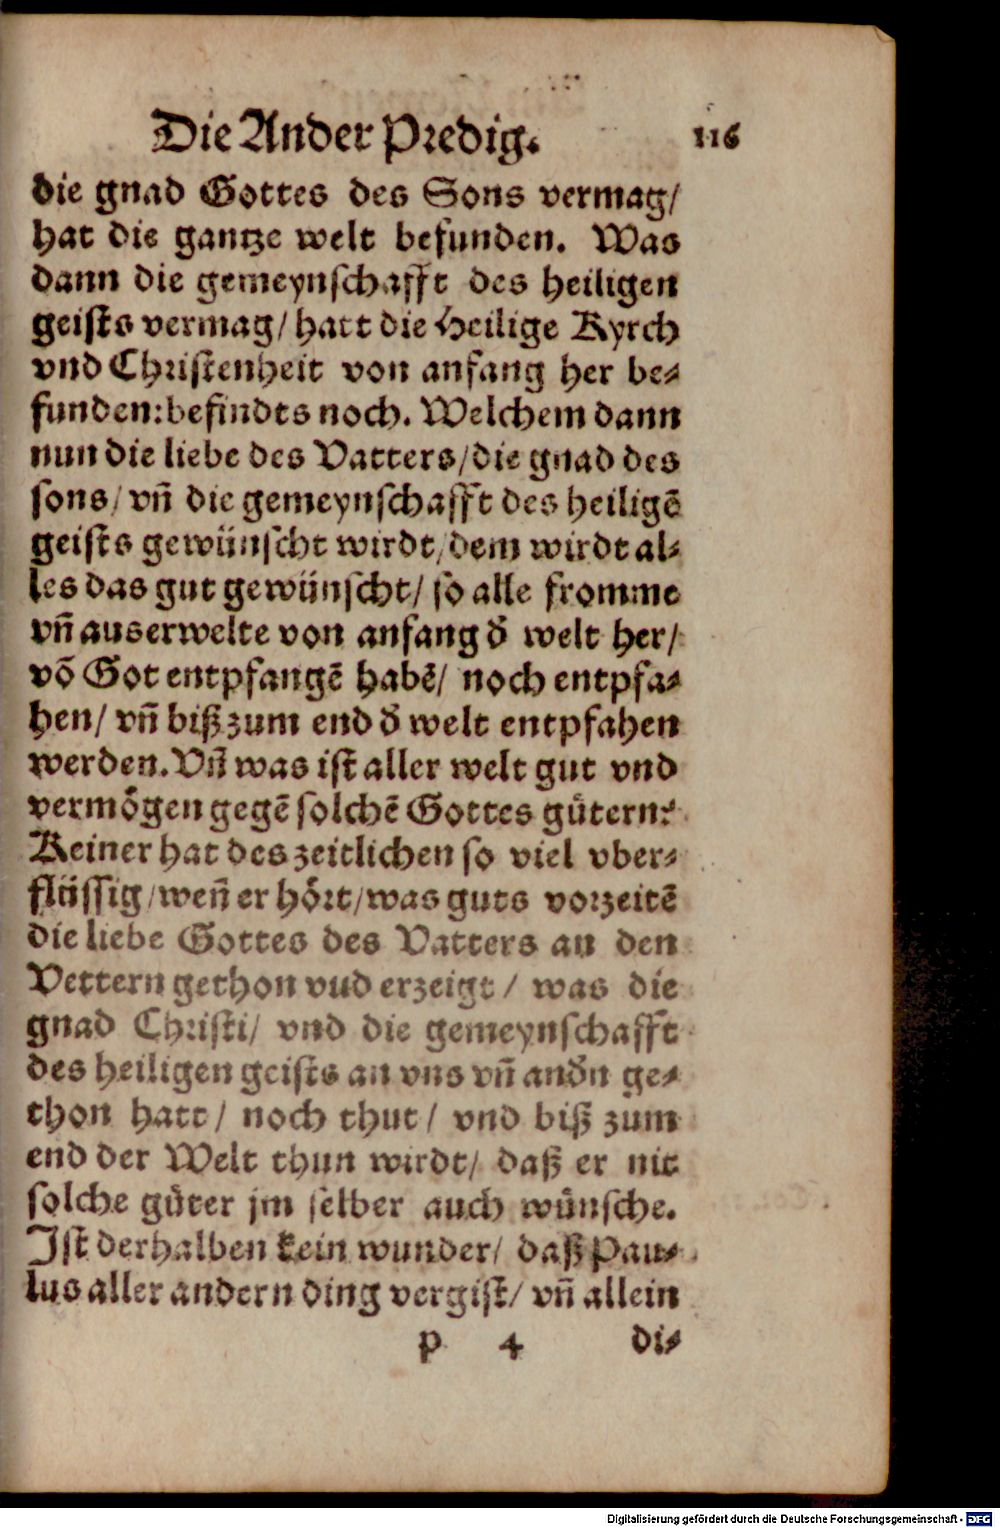 Die Ander Predig. 116
die gnad Gottes des Sons vermag/
hat die gantze welt befunden. Was
dann die gemeynschafft des heiligen
geists vermag/ hatt die Heilige Kyrch
vnd Christenheit von anfang her be-
funden: befindts noch. Welchem dann
nun die liebe des Vatters/ die gnad des
sons/ vñ die gemeynschafft des heiligẽ
geists gewünscht wirdt/ dem wirdt al-
les das gut gewünscht/ so alle fromme
vñ auserwelte von anfang d̕ welt her/
võ Got entpfangẽ habẽ/ noch entpfa-
hen/ vñ biß zum end d̕ welt entpfahen
werden. Vñ was ist aller welt gut vnd
vermoͤgen gegẽ solchẽ Gottes guͤtern?
Keiner hat des zeitlichen so viel vber-
fluͤssig/ weñ er hoͤrt/ was guts vorzeitẽ
die liebe Gottes des Vatters an den
Vettern gethon vnd erzeigt/ was die
gnad Christi/ vnd die gemeynschafft
des heiligen geists an vns vñ and̕n ge-
thon hatt/ noch thut/ vnd biß zum
end der Welt thun wirdt/ daß er nit
solche guͤter jm selber auch wuͤnsche.
Ist derhalben kein wunder/ daß Pau-
lus aller andern ding vergist/ vñ allein
p 4 di-
Digitalisierung gefördert durch die Deutsche Forschungsgemeinschaft - DFG